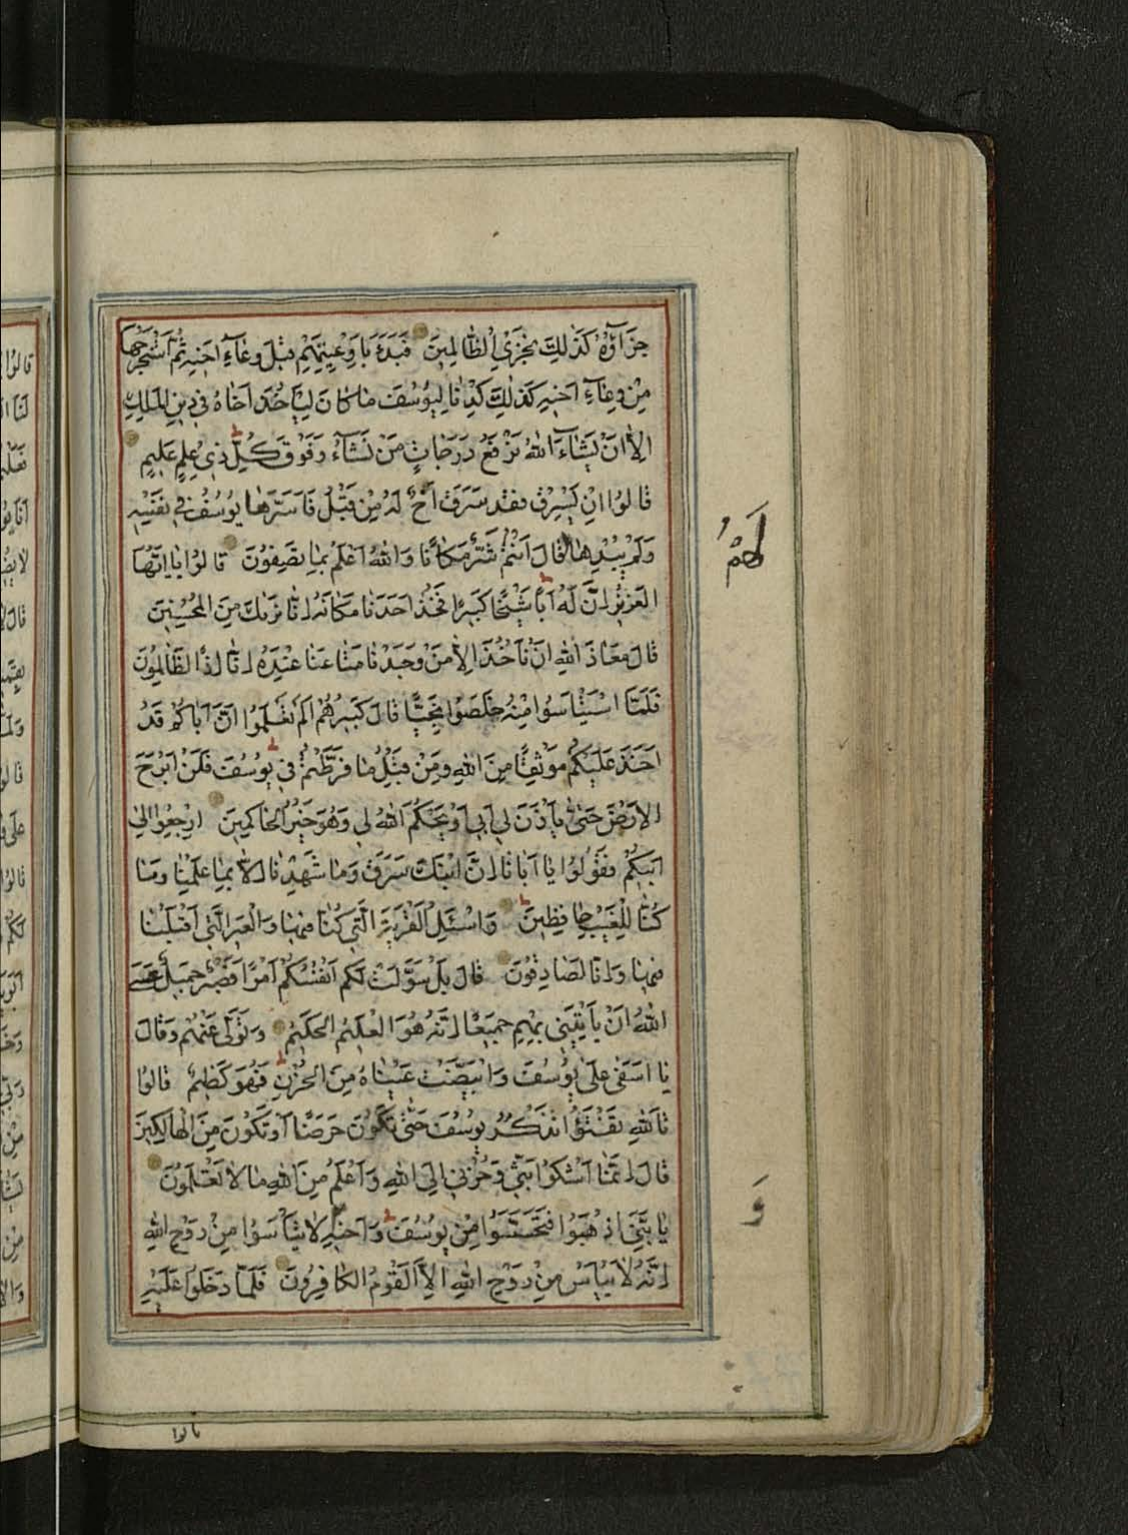 جَزَآؤُهُ كَذٰلِكَ نَجْزِي الظَّالِمِينَ فَبَدَءَ بِاَوْعِيَتِهِمْ قَبْلَ وِعَآءِ اَخِيهِ ثُمَّ اسْتَخْرَجَهَا
مِنْ وِعَآءِ اَخِيهِ كَذٰلِكَ كِدْنَا لِيُوسُفَ مَا كَانَ لِيَأْخُذَ اَخَاهُ فِي دِينِ الْمَلِكِ
اِلَّا اَنْ يَشَآءَ اللهُ نَرْفَعُ دَرَجَاتٍ مَنْ نَشَآءُ وَفَوْقَ كُلِّ ذِي عِلْمٍ عَلِيمٌ
قَالُوا اِنْ يَسْرِقْ فَقَدْ سَرَقَ اَخٌ لَهُ مِنْ قَبْلُ فَاَسَرَّهَا يُوسُفُ فِي نَفْسِهِ
وَلَمْ يُبْدِهَا قَالَ اَنْتُمْ شَرٌّ مَكَانًا وَاللهُ اَعْلَمُ بِمَا تَصِفُونَ قَالُوا يَا اَيُّهَا
الْعَزِيزُ اِنَّ لَهُ اَبًا شَيْخًا كَبِيرًا فَخُذْ اَحَدَنَا مَكَانَهُ اِنَّا نَرٰيكَ مِنَ الْمُحْسِنِينَ
قَالَ مَعَاذَ اللهِ اَنْ نَأْخُذَ اِلَّا مَنْ وَجَدْنَا مَتَاعَنَا عِنْدَهُ اِنَّا اِذًا لَظَالِمُونَ
فَلَمَّا اسْتَيْأَسُوا مِنْهُ خَلَصُوا نَجِيًّا قَالَ كَبِيرُهُمْ اَلَمْ تَعْلَمُوا اَنَّ اَبَاكُمْ قَدْ
اَخَذَ عَلَيْكُمْ مَوْثِقًا مِنَ اللهِ وَمِنْ قَبْلُ مَا فَرَّطْتُمْ فِي يُوسُفَ فَلَنْ اَبْرَحَ
الْاَرْضَ حَتّٰى يَأْذَنَ لِي اَبِي اَوْ يَحْكُمَ اللهُ لِي وَهُوَ خَيْرُ الْحَاكِمِينَ اِرْجِعُوا اِلٰى
اَبِيكُمْ فَقُولُوا يَا اَبَانَا اِنَّ ابْنَكَ سَرَقَ وَمَا شَهِدْنَا اِلَّا بِمَا عَلِمْنَا وَمَا
كُنَّا لِلْغَيْبِ حَافِظِينَ وَاسْئَلِ الْقَرْيَةَ الَّتِي كُنَّا فِيهَا وَالْعِيرَ الَّتِي اَقْبَلْنَا
فِيهَا وَاِنَّا لَصَادِقُونَ قَالَ بَلْ سَوَّلَتْ لَكُمْ اَنْفُسُكُمْ اَمْرًا فَصَبْرٌ جَمِيلٌ عَسَى
اللهُ اَنْ يَأْتِيَنِي بِهِمْ جَمِيعًا اِنَّهُ هُوَ الْعَلِيمُ الْحَكِيمُ وَتَوَلّٰى عَنْهُمْ وَقَالَ
يَا اَسَفٰى عَلٰى يُوسُفَ وَابْيَضَّتْ عَيْنَاهُ مِنَ الْحُزْنِ فَهُوَ كَظِيمٌ قَالُوا
تَاللهِ تَفْتَؤُا تَذْكُرُ يُوسُفَ حَتّٰى تَكُونَ حَرَضًا اَوْ تَكُونَ مِنَ الْهَالِكِينَ
قَالَ اِنَّمَا اَشْكُوا بَثِّي وَحُزْنِي اِلَى اللهِ وَاَعْلَمُ مِنَ اللهِ مَا لَا تَعْلَمُونَ
يَا بَنِيَّ اذْهَبُوا فَتَحَسَّسُوا مِنْ يُوسُفَ وَاَخِيهِ وَلَا تَيْأَسُوا مِنْ رَوْحِ اللهِ
اِنَّهُ لَا يَيْاَسُ مِنْ رَوْحِ اللهِ اِلَّا الْقَوْمُ الْكَافِرُونَ فَلَمَّا دَخَلُوا عَلَيْهِ
لَهُمْ
وَ
قالوا